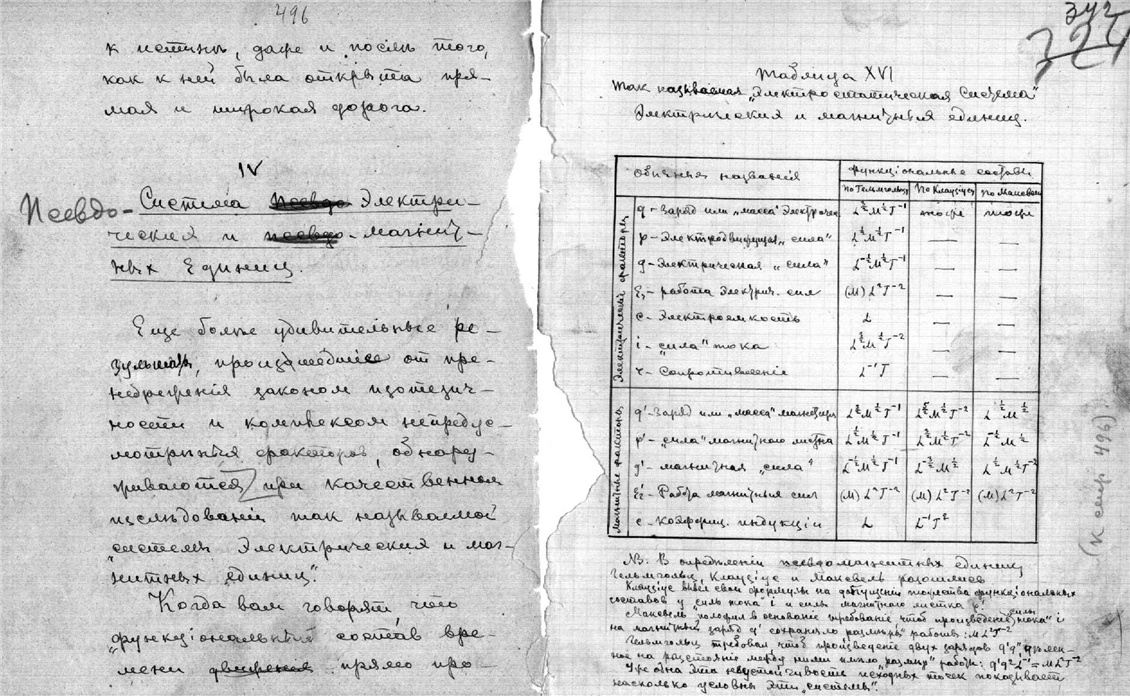 496
к истинѣ, даже и послѣ того,
какъ к ней была открыта пря-
мая и широкая дорога.
IV
Псевдо-Система Электри-
ческия и магнит-
ных Единиц.
Еще болѣе удивительные ре-
зультаты, происшедшие от пре-
небреженiя законом изотезич-
ности и комплексом непреду-
смотрѣнныя факторов, обнару-
живаются при качественном
изслѣдованiи так называемой
„системы Электрическия и маг-
нитных единиц".
Когда вам говорят что
функцiональный состав вре-
мени прямо про-
342
Таблица XVI
так называемая „Электростатическая система"
Электрическия и магнитныя единиц.
Обычныя названiя
функцiональные составы
по Гельмгольцу по Клаузiусу по Максвелю
Электрическiе факторы
q - заряд или „масса" Электриче L^{3/2} M^{1/2} T^{-1} тоже тоже
p - Электродвижущая „сила" L^{1/2} M^{1/2} T^{-1} — —
g - Электрическая „сила" L^{-1/2} M^{1/2} T^{-1} — —
- работа Электрич. сил (M) L^2 T^{-2} — —
c - Электроемкость L — —
i - „сила" тока L^{3/2} M^{1/2} T^{-2} — —
r - Сопротивленiе L^{-1} T — —
Магнитные факторы
q' - заряд или „масса" магнитн L^{3/2} M^{1/2} T^{-1} L^{5/2} M^{1/2} T^{-2} L^{1/2} M^{1/2}
p' - „сила" магнитного листка L^{1/2} M^{1/2} T^{-1} L^{3/2} M^{1/2} T^{-2} L^{-1/2} M^{1/2}
g' - магнитная „сила" L^{-1/2} M^{1/2} T^{-1} L^{-3/2} M^{1/2} L^{1/2} M^{1/2} T^{-2}
- Работа магнитныя сил (M) L^2 T^{-2} (M) L^2 T^{-2} (M) L^2 T^{-2}
c - Коэффиц. индукцiи L L^{-1} T^2
NB. В опредѣленiи псевдомагнитных единиц
Гельмгольц, Клаузiус и Максвель разошлись
Клаузiус вывел свои формулы на допущенiи тождества функцiональных
составов у силы тока i и силы магнитного листка p'.
Максвель положил в основанiе требованiе чтоб произведенiе „силы тока" i
на магнитный заряд q' сохраняло размѣръ работы: ML^2T^{-2}
Гельмгольц требовал чтоб произведенiе двух зарядов q'q" дѣлен-
ное на разстоянiе между ними имѣло „размѣр" работы: q'q"L^{-1} = ML^2T^{-2}
Уже одна эта неустойчивость исходных точек показывает
насколько условны эти „системы".
(к стр. 496)